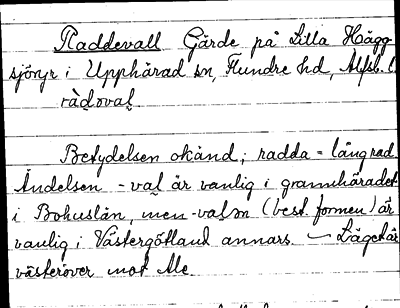 Raddevall Gärde på Lilla Hägg
sjöryr i Upphärad sn, Flundre hd, Älfsb. l.
ràdoval
Betydelsen okänd; radda = lång rad.
Ändelsen -val är vanlig i grannhäradet
i Bohuslän, men -valm (best. formen) är
vanlig i Västergötland annars. – Läget är
västeröver mot